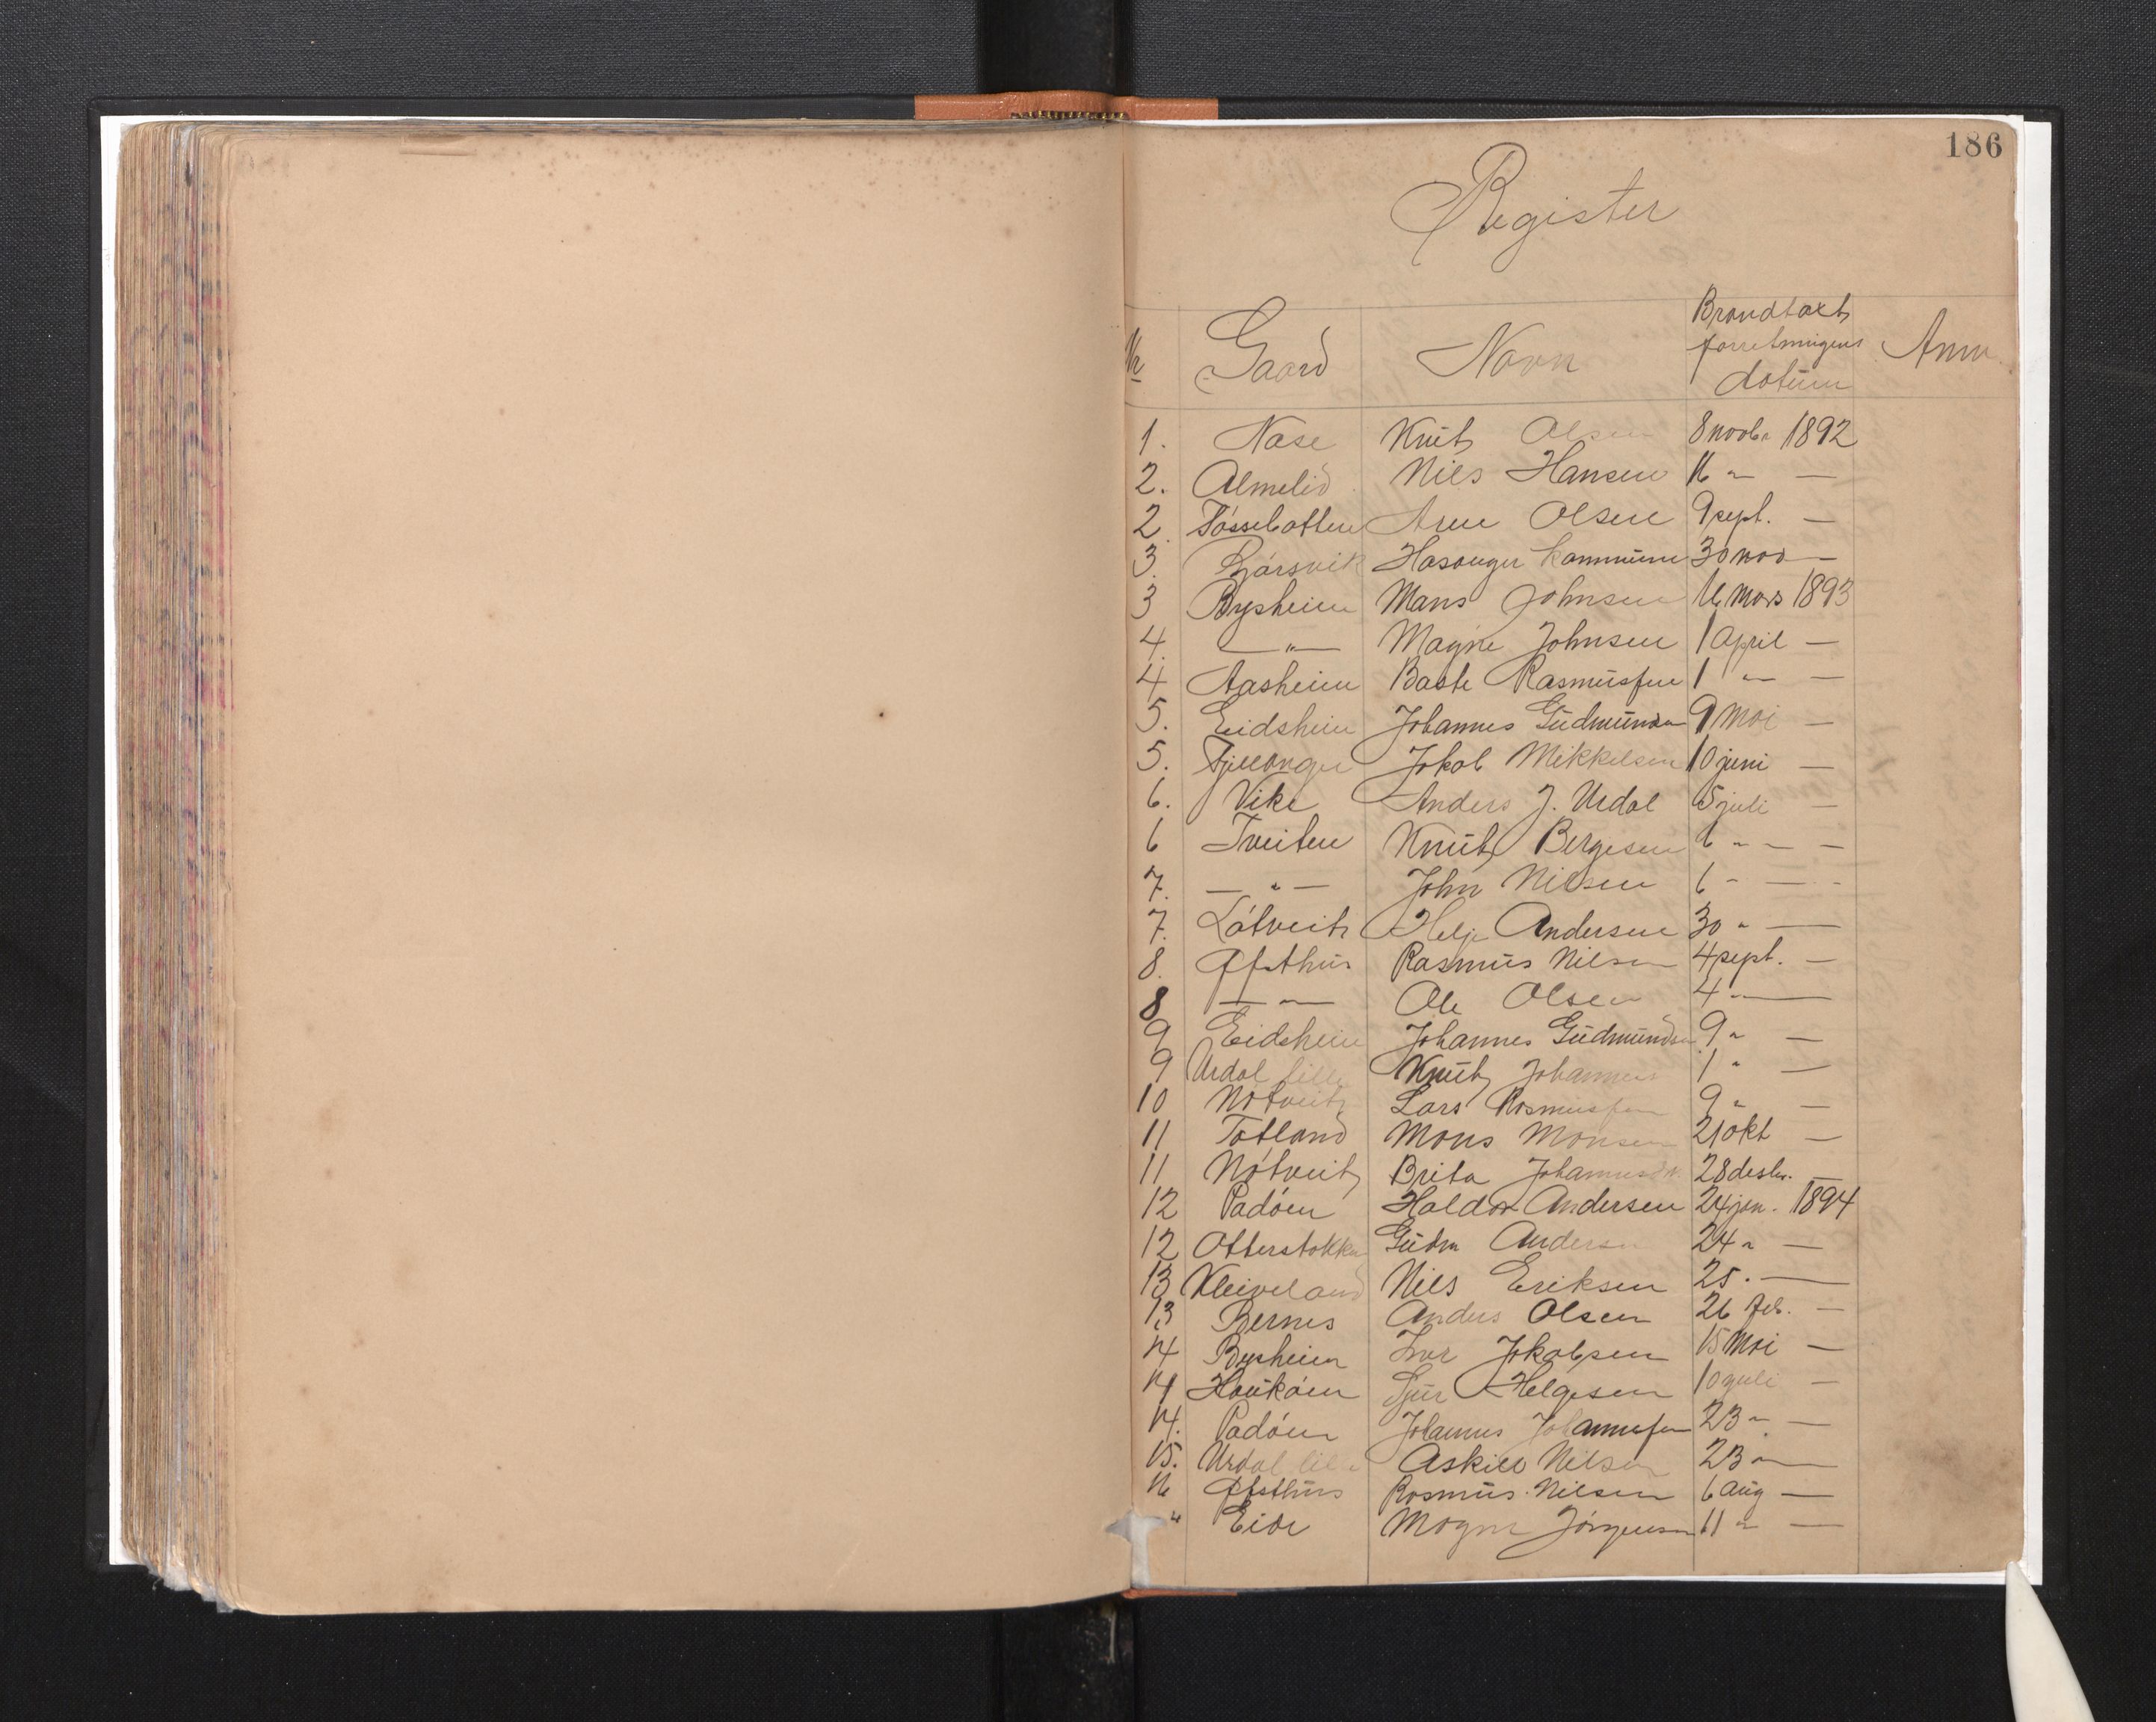 186
Register
Nr Gaard Navn Brandtaxt forretningens datum Anm.
1. Nase Knut Olsen 8 novbr 1892
2. Almelid Nils Hansen 16 " —
2. Fossebotten Arne Olsen 9 sept. —
3. Bjørsvik Hosanger kommune 30 nov —
3 Bysheim Mans Johnsen 16 mars 1893
4. — " — Magne Johnsen 1 april —
4. Aasheim Baste Rasmussen 1 " —
5. Eidsheim Johannes Gudmunds 9 mai —
5. Fjellanger Jokob Mikkelsen 10 juni —
6. Vike Anders J. Urdal 5 juli —
6 Tveiten Knut Bergesen 6 " — —
7. — " — John Nilsen 6 " — —
7. Lótveit Helje Andersen 30 " —
8. Ofsthus Rasmus Nilsen 4 sept. —
8 — " — Ole Olsen 4 " —
9 Eidsheim Johannes Gudmundsen 9 " —
9 Urdal lille Knut Johannes 1 " —
10 Nótveit Lars Rasmussen 9 " —
11 Totland Mons Monsen 21 okt —
11 Nótveit Brita Johannesdtr 28 desbr. —
12 Padóen Haldor Andersen 24 jan. 1894
12 Otterstokken Gudm Andersen 24 " —
13 Kleiveland Nils Eriksen 25. —
13 Bernes Anders Olsen 26 feb. —
14 Bysheim Iver Jokobsen 15 Mai —
14 Haukóen Sjur Helgesen 10 juli —
14. Padóen Johannes Johannesen 23 " —
15. Urdal lille Askill Nilsen 23 " —
16 Ofsthus Rasmus Nilsen 6 aug —
" Eide Mogne Jörgensen 11 " —